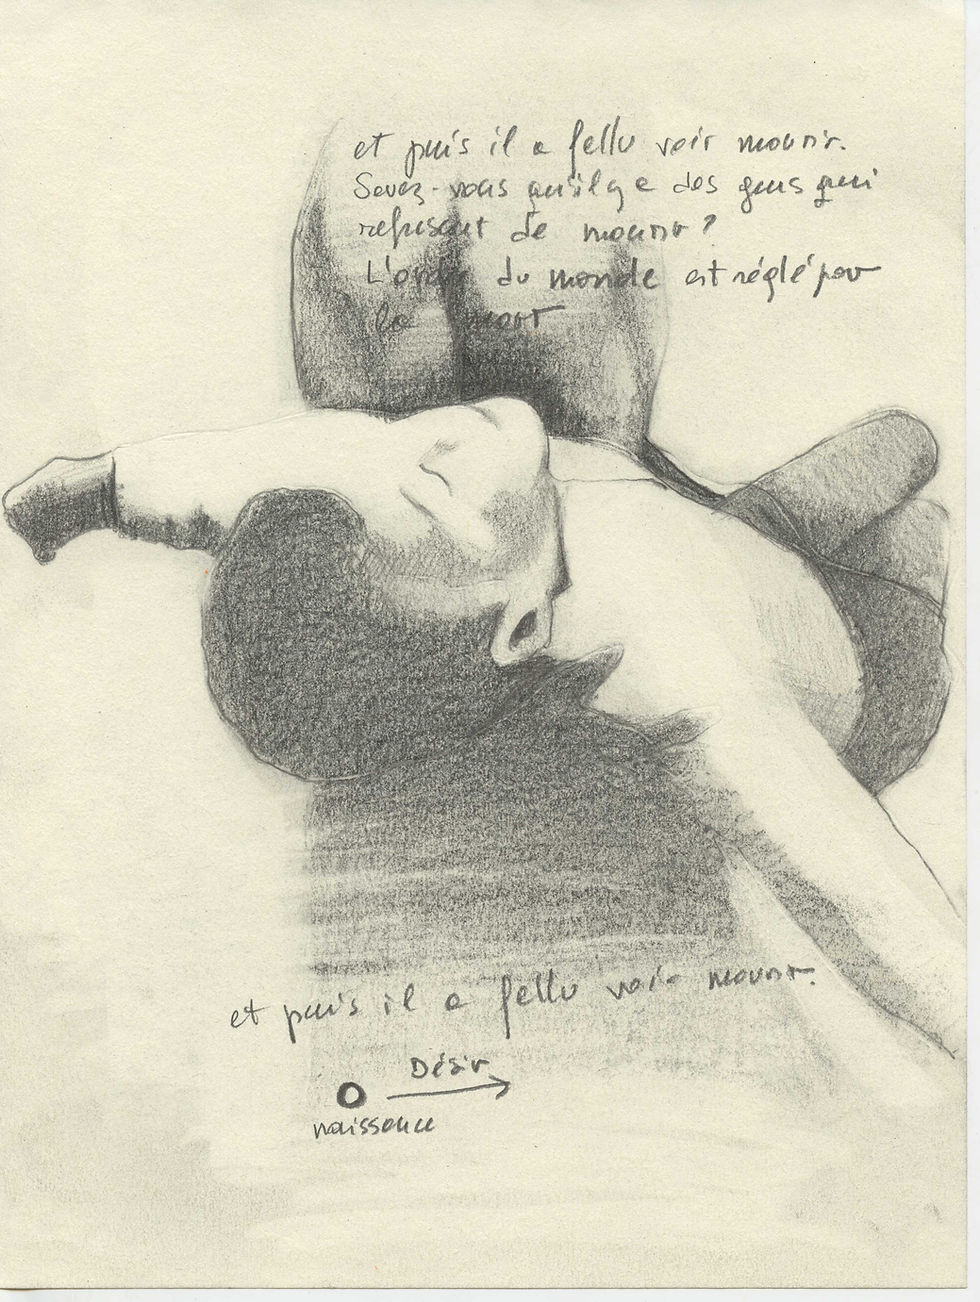 et puis il a fallu voir mourir.
Savez-vous qu'il y a des gens qui
refusent de mourir ?
L'ordre du monde est réglé par
la mort
et puis il a fallu voir mourir.
Désir
naissance